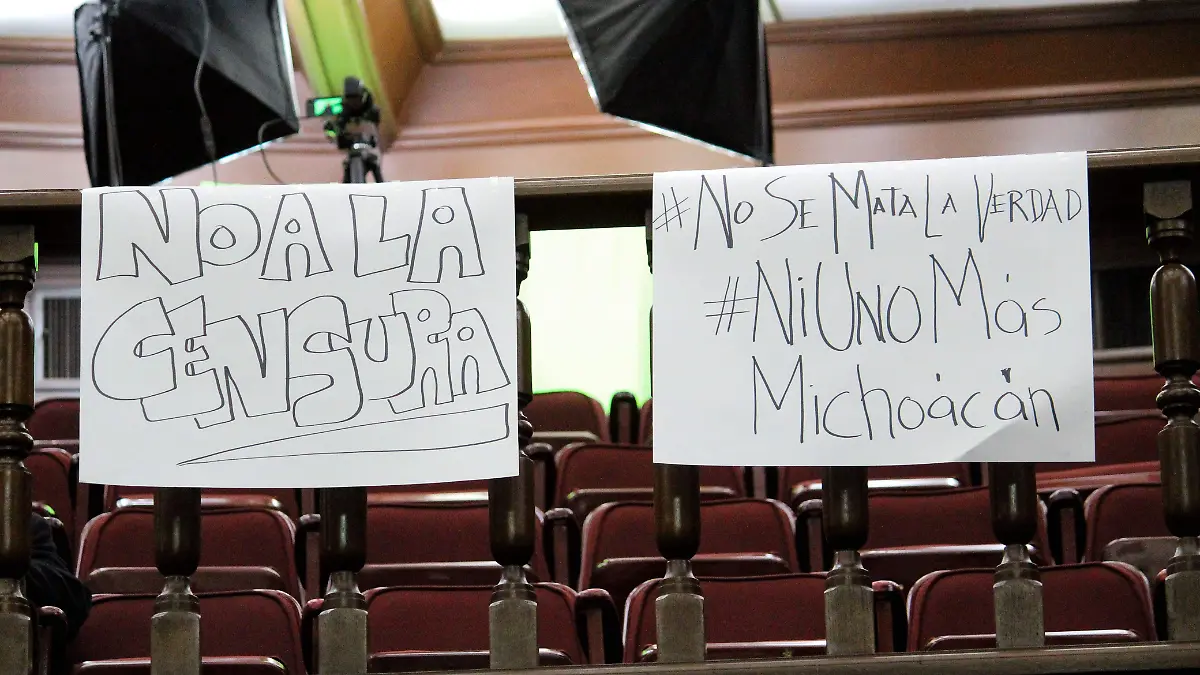 NO A LA
CENSURA
#No SE MATA LA VERDAD
#NiUNO Más
Michoácán